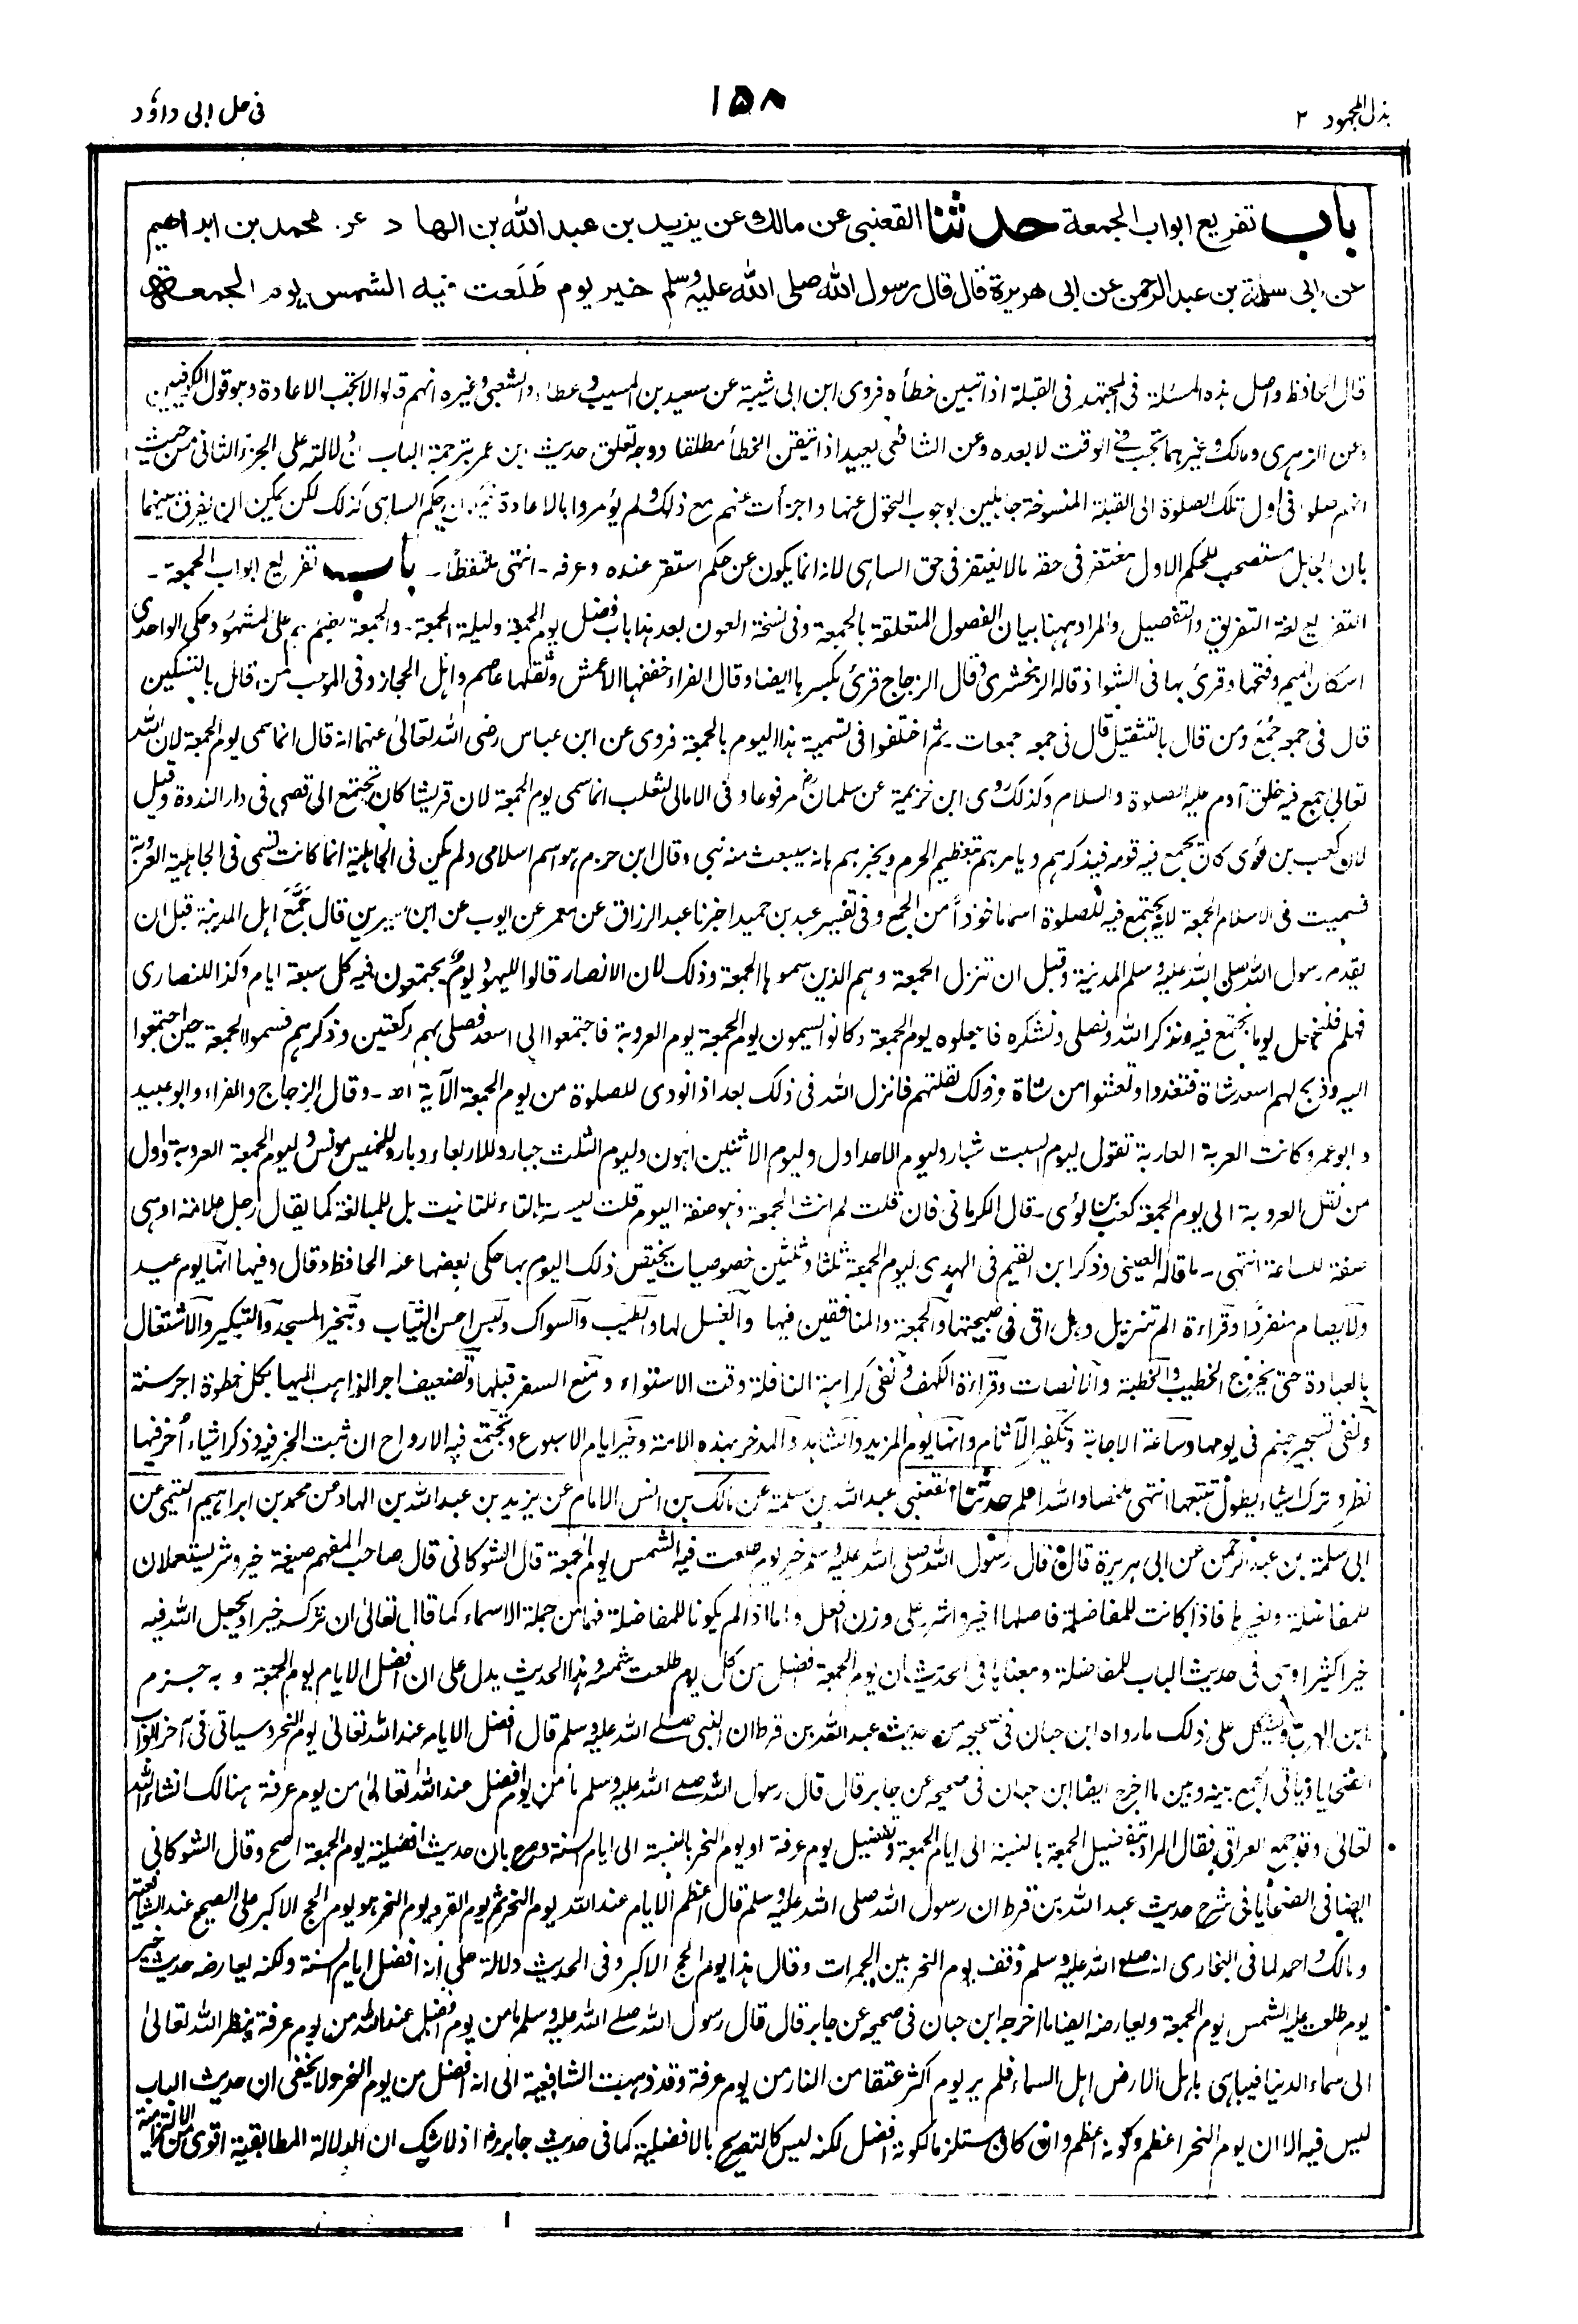 بذل المجهود ٢
١٥٨
فى حل ابى داؤد
باب تفريع ابواب الجمعة حدثنا القعنبى عن مالك عن يزيد بن عبد الله بن الهاد عن محمد بن ابراهيم
عن ابى سلمة بن عبد الرحمن عن ابى هريرة قال قال رسول الله صلى الله عليه وسلم خير يوم طَلَعت فيه الشمس يوم الجمعة
قال الحافظ واصل هذه المسئلة فى المجتهد فى القبلة اذا تبين خطأه فروى ابن ابى شيبة عن سعيد بن المسيب وعطاء والشعبى وغيره انهم قالوا لا تجب الاعادة وهو قول الكوفيين
وعن الزهرى ومالك وغيرهما تجب فى الوقت لا بعده وعن الشافعى يعيد اذا تيقن الخطأ مطلقا ووجه تعلق حديث بن عمر بترجمة الباب دلالته على الجزء الثانى من حيث
انهم صلوا فى اول تلك الصلوة الى القبلة المنسوخة جاهلين بوجوب التحول عنها واجزأت عنهم مع ذلك ولم يؤمروا بالاعادة حكم الساهى كذلك لكن يمكن ان يفرق بينهما
بان الجاهل مستصحب للحكم الاول مغتفر فى حقه ما لا يغتفر فى حق الساهى لانه انما يكون عن حكم استقر عنده وعرفه - انتهى ملتقطا - باب تفريع ابواب الجمعة -
التفريع لغة التفريق والتفصيل والمراد ههنا بيان الفصول المتعلقة بالجمعة وفى نسخة العون بعد هذا باب فضل يوم الجمعة وليلة الجمعة - والجمعة بضم ميم على المشهور وحكى الواحدى
اسكان الميم وفتحها وقرئ بها فى الشواذ قاله الزمخشرى وقال الزجاج قرئ بكسرها ايضا وقال الفراء خففها الاعمش وثقلها عاصم واهل الحجاز وفى الموعب من قال بالتسكين
قال فى جمعه جُمَع ومن قال بالتثقيل قال فى جمعه جمعات - ثم اختلفوا فى تسمية هذا اليوم بالجمعة فروى عن ابن عباس رضى الله تعالى عنهما انه قال انما سمى يوم الجمعة لان الله
تعالى جمع فيه خلق آدم عليه الصلوة والسلام وكذلك روى ابن خزيمة عن سلمان رض مرفوعا وفى الامالى لثعلب انما سمى يوم الجمعة لان قريشا كان تجتمع الى قصى فى دار الندوة وقيل
لان كعب بن لؤى كان يجمع فيه قومه فيذكرهم ويامرهم بتعظيم الحرم ويخبرهم بانه سيبعث منه نبى وقال ابن حزم هو اسم اسلامى ولم يكن فى الجاهلية انما كانت تسمى فى الجاهلية العروبة
فسميت فى الاسلام الجمعة لانه يجتمع فيه للصلوة اسما ماخوذاً من الجمع وفى تفسير عبد بن حميد اخبرنا عبد الرزاق عن معمر عن ايوب عن ابن سيرين قال جَمَّعَ اهل المدينة قبل ان
يقدم رسول الله صلى الله عليه وسلم المدينة وقبل ان تنزل الجمعة وهم الذين سموها الجمعة وذلك لان الانصار قالوا لليهود يوم يجتمعون فيه كل سبعة ايام وكذا للنصارى
فهلم فلنجعل يوما نجتمع فيه ونذكر الله ونصلى ونشكره فاجعلوه يوم الجمعة وكانوا يسمون يوم الجمعة يوم العروبة فاجتمعوا الى اسعد فصلى بهم ركعتين وذكرهم فسموا الجمعة حين اجتمعوا
اليه وذبح لهم اسعد شاة فتغدوا وتعشوا من شاة وذلك لقلتهم فانزل الله فى ذلك بعد اذا نودى للصلوة من يوم الجمعة الآية اه - وقال الزجاج والفراء وابو عبيد
وابو عمرو كانت العرب العاربة تقول ليوم السبت شبار وليوم الاحد اول وليوم الاثنين اهون وليوم الثلث جبار وللاربعاء دبار وللخميس مونس وليوم الجمعة العروبة واول
من نقل العروبة الى يوم الجمعة كعب بن لؤى - قال الكرمانى فان قلت لم انث الجمعة وهو صفة اليوم قلت ليست التاء للتانيث بل للمبالغة كما يقال رجل علامة او هى
صفة للساعة انتهى - ما قاله العينى وذكر ابن القيم فى الهدى ليوم الجمعة ثلثا وثلثين خصوصيات يختص ذلك اليوم بها حكى بعضها عنه الحافظ وقال وفيها انها يوم عيد
ولا يصام منفردًا وقراءة الم تنزيل وهل اتى فى صبيحتها والجمعة والمنافقين فيها والغسل لها والطيب والسواك ولبس احسن الثياب وتبخير المسجد والتبكير والاشتغال
بالعبادة حتى يخرج الخطيب والخطبة والانصات وقراءة الكهف ونفى كراهة النافلة وقت الاستواء ومنع السفر قبلها وتضعيف اجر الذاهب اليها بكل خطوة اجر سنة
ونفى تسجير جهنم فى يومها وساعة الاجابة وتكفير الآثام وانها يوم المزيد والشاهد والمدخر بهذه الامة وخير ايام الاسبوع وتجتمع فيه الارواح ان ثبت الخبر فيه وذكر اشياء أخر فيها
نظر وترك اشياء يطول تتبعها انتهى ملخصا والله اعلم حدثنا القعنبى عبد الله بن سلمة عن مالك بن انس الامام عن يزيد بن عبد الله بن الهاد عن محمد بن ابراهيم التيمى عن
ابى سلمة بن عبد الرحمن عن ابى هريرة قال قال رسول الله صلى الله عليه وسلم خير يوم طلعت فيه الشمس يوم الجمعة قال الشوكانى قال صاحب المفهم صيغة خير وشر يستعملان
للمفاضلة ولغيرها فاذا كانت للمفاضلة فاصلها اخير واشر على وزن افعل واما اذا لم يكونا للمفاضلة فهما من جملة الاسماء كما قال تعالى ان ترك خيرا ويجعل الله فيه
خيرا كثيرا وهى فى حديث الباب للمفاضلة ومعناها فى الحديث ان يوم الجمعة افضل من كل يوم طلعت شمسه وهذا الحديث يدل على ان افضل الايام يوم الجمعة وبه جزم
ابن العربى ويشكل على ذلك ما رواه ابن حبان فى صحيحه من حديث عبد الله بن قرط ان النبى صلى الله عليه وسلم قال افضل الايام عند الله تعالى يوم النحر وسياتى فى آخر ابواب
الضحايا وياتى الجمع بينه وبين ما اخرج ايضا ابن حبان فى صحيحه عن جابر قال قال رسول الله صلى الله عليه وسلم ما من يوم افضل عند الله تعالى من يوم عرفة هنالك انشاء الله
تعالى وقد جمع العراقى فقال المراد بتفضيل الجمعة بالنسبة الى ايام الجمعة وتفضيل يوم عرفة او يوم النحر بالنسبة الى ايام السنة وصرح بان حديث افضلية يوم الجمعة اصح وقال الشوكانى
ايضا فى الضحايا فى شرح حديث عبد الله بن قرط ان رسول الله صلى الله عليه وسلم قال اعظم الايام عند الله يوم النحر ثم يوم القر ويوم النحر هو يوم الحج الاكبر على الصحيح عند الشافعية
ومالك واحمد لما فى البخارى انه صلى الله عليه وسلم وقف يوم النحر بين الجمرات وقال هذا يوم الحج الاكبر وفى الحديث دلالة على أنه افضل ايام السنة ولكنه يعارضه حديث خير
يوم طلعت عليه الشمس يوم الجمعة ويعارضه ايضا ما اخرجه ابن حبان فى صحيحه عن جابر قال قال رسول الله صلى الله عليه وسلم ما من يوم افضل عند الله من يوم عرفة ينظر الله تعالى
الى سماء الدنيا فيباهى باهل الارض اهل السماء فلم ير يوم اكثر عتقا من النار من يوم عرفة وقد ذهبت الشافعية الى انه افضل من يوم النحر ولا يخفى ان حديث الباب
ليس فيه الا ان يوم النحر اعظم وكونه اعظم وان كان مستلزما لكونه افضل لكنه ليس كالتصريح بالافضلية كما فى حديث جابر رض اذ لا شك ان الدلالة المطابقية اقوى من الالتزامية